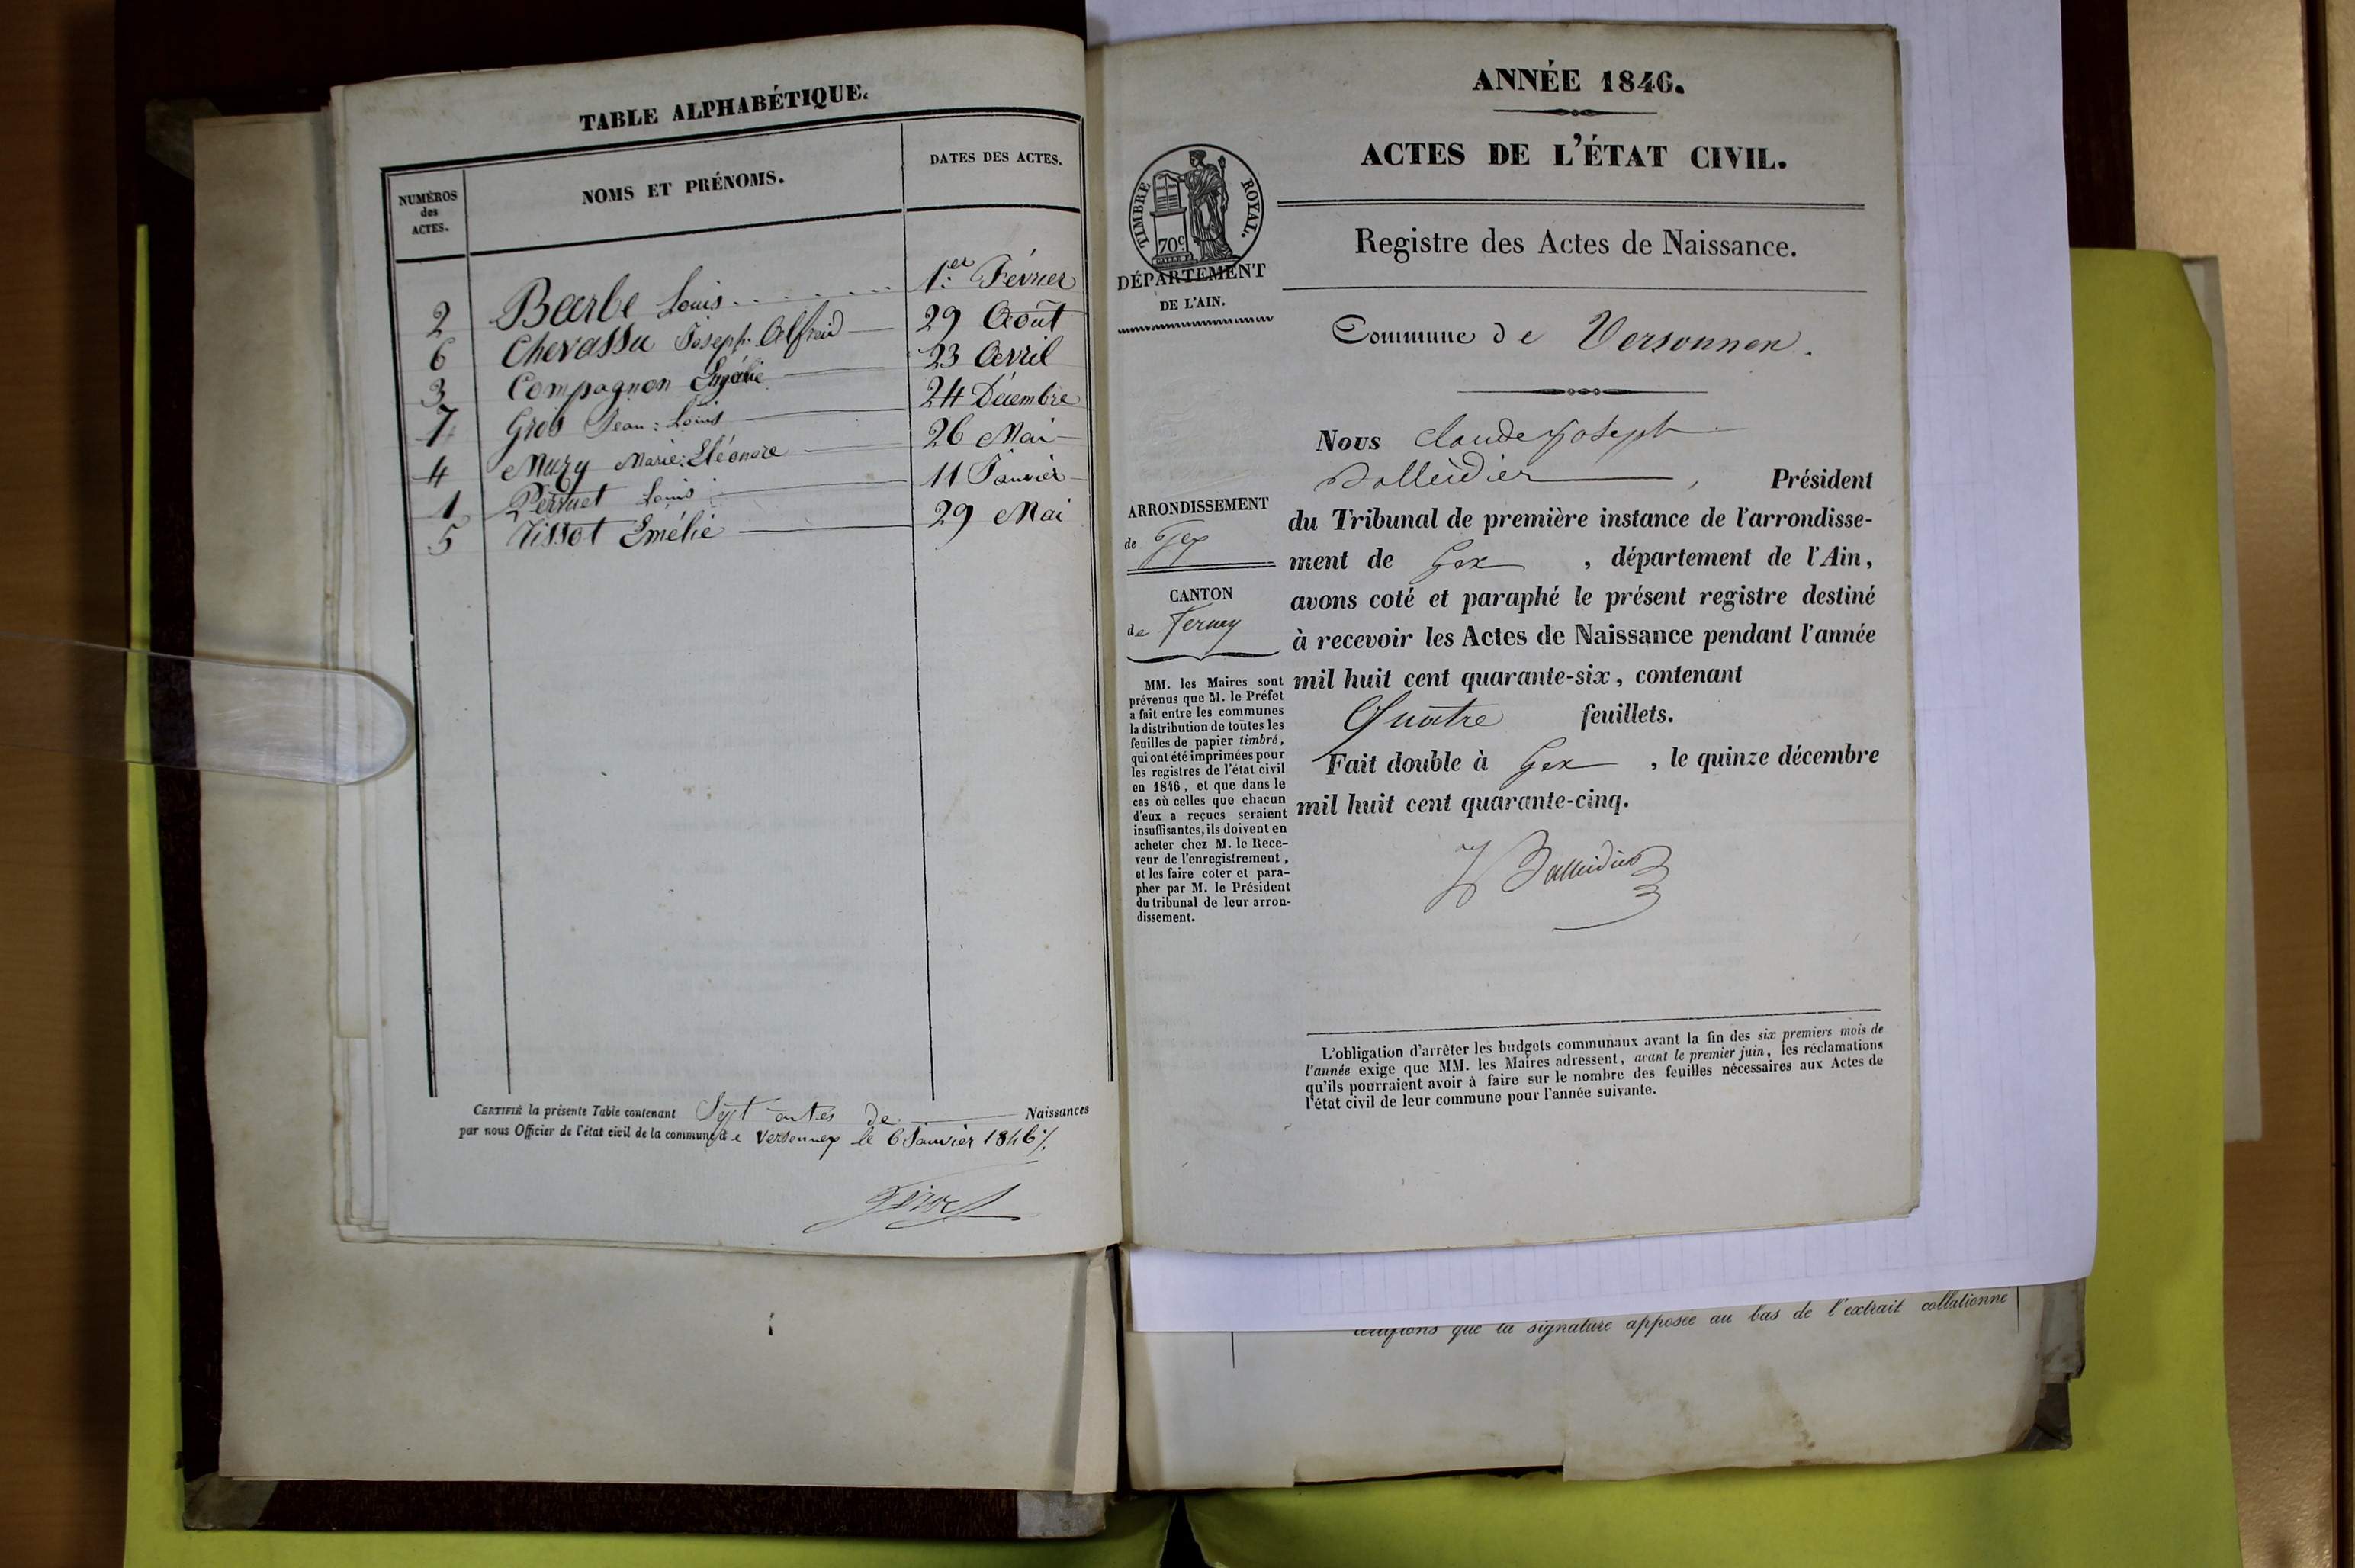 TABLE ALPHABÉTIQUE.
NUMÉROS des ACTES.
NOMS ET PRÉNOMS.
DATES DES ACTES.
2 Barbe Louis 1.er Février
6 Chevassu Joseph Alfred 29 Août
3 Compagnon 23 Avril
7 Gros Jean-Louis 24 Décembre
4 Mury Marie-Eléonore 26 Mai
1 Perruet Louis 11 Janvier
5 Tissot Emélie 29 Mai
CERTIFIÉ la présente Table contenant Sept actes de Naissances
par nous Officier de l'état civil de la commune de Versonnex le 6 Janvier 1846
ANNÉE 1846.
ACTES DE L'ÉTAT CIVIL.
TIMBRE ROYAL.
70c
DÉPARTEMENT
DE L'AIN.
Registre des Actes de Naissance.
Commune de Versonnex.
ARRONDISSEMENT
de Gex
CANTON
de Ferney
MM. les Maires sont
prévenus que M. le Préfet
a fait entre les communes
la distribution de toutes les
feuilles de papier timbré,
qui ont été imprimées pour
les registres de l'état civil
en 1846, et que dans le
cas où celles que chacun
d'eux a reçues seraient
insuffisantes, ils doivent en
acheter chez M. le Rece-
veur de l'enregistrement,
et les faire coter et para-
pher par M. le Président
du tribunal de leur arron-
dissement.
Nous Claude Joseph
Balleidier, Président
du Tribunal de première instance de l'arrondisse-
ment de Gex, département de l'Ain,
avons coté et paraphé le présent registre destiné
à recevoir les Actes de Naissance pendant l'année
mil huit cent quarante-six, contenant
Quatre feuillets.
Fait double à Gex, le quinze décembre
mil huit cent quarante-cinq.
Balleidier
L'obligation d'arrêter les budgets communaux avant la fin des six premiers mois de
l'année exige que MM. les Maires adressent, avant le premier juin, les réclamations
qu'ils pourraient avoir à faire sur le nombre des feuilles nécessaires aux Actes de
l'état civil de leur commune pour l'année suivante.
certifions que la signature apposée au bas de l'extrait collationné